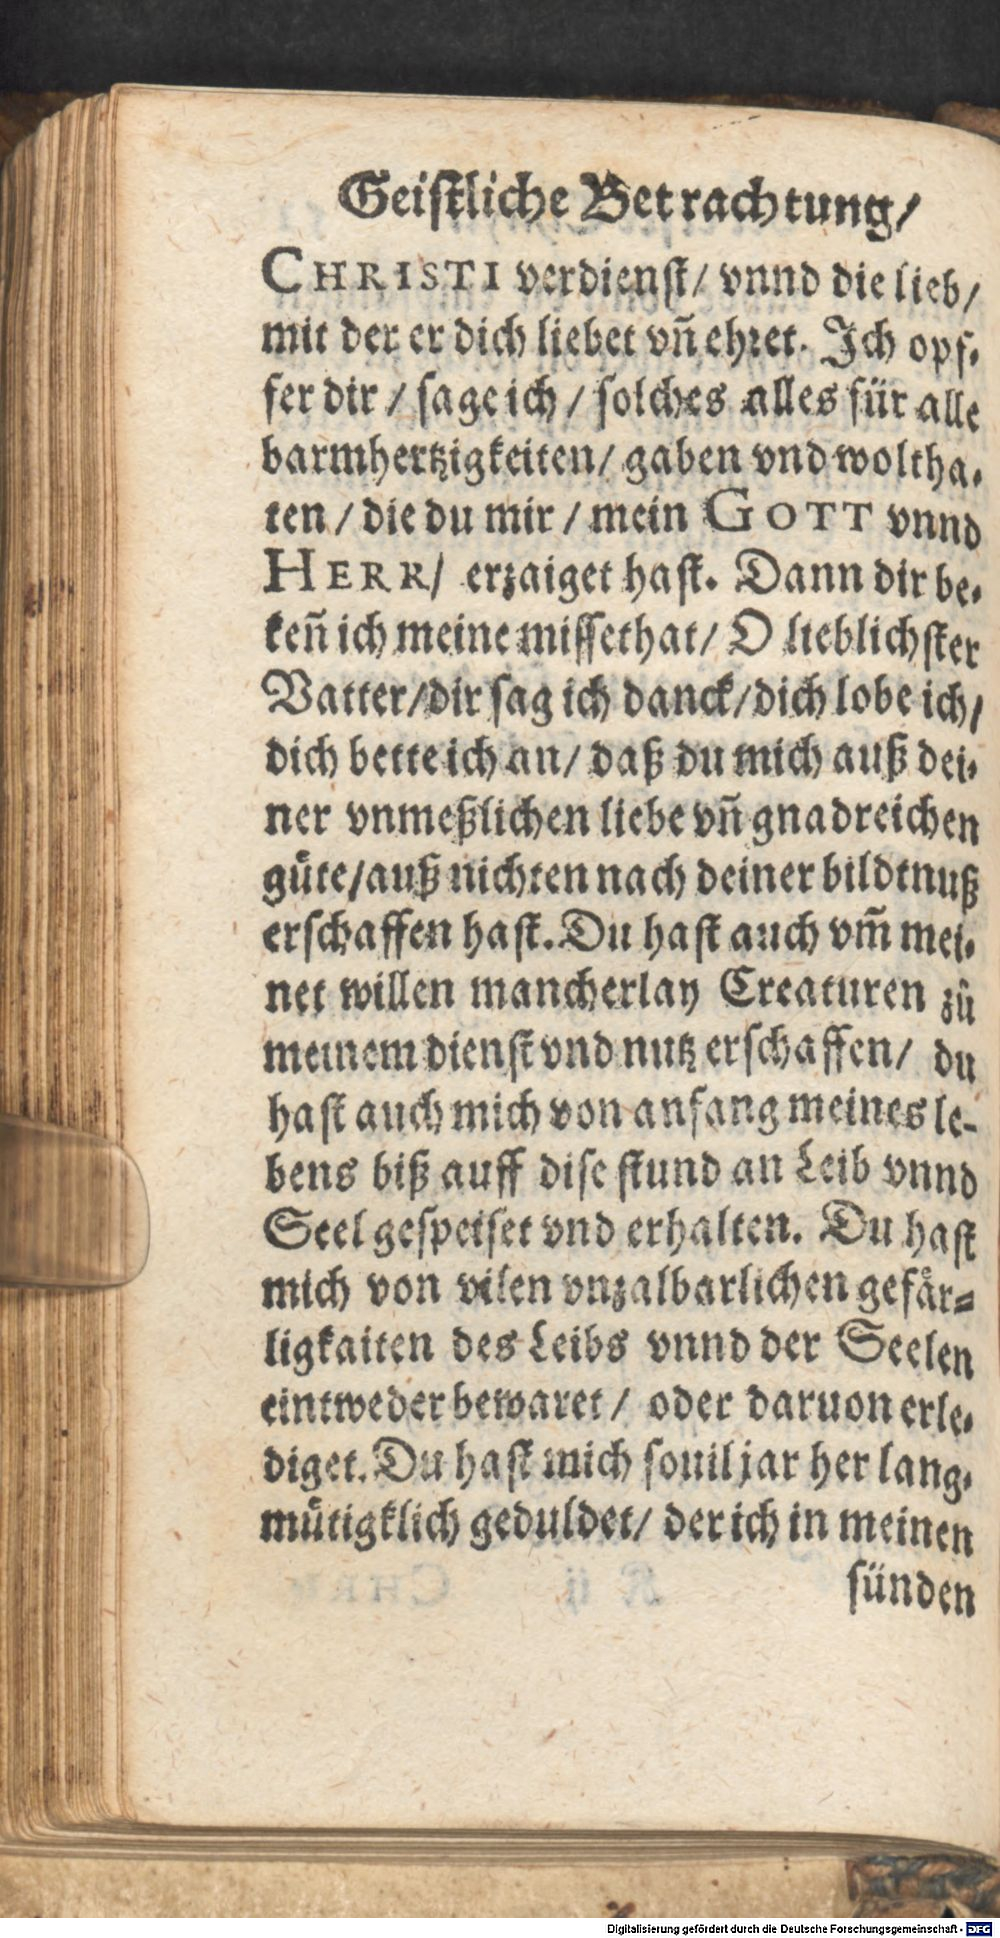 Geistliche Betrachtung/
CHRISTI verdienst/ vnnd die lieb/
mit der er dich liebet vn̄ ehret. Ich opf-
fer dir / sage ich / solches alles für alle
barmhertzigkeiten/ gaben vnd woltha-
ten / die du mir / mein GOTT vnnd
HERR/ erzaiget hast. Dann dir be-
ken̄ ich meine missethat/ O lieblichster
Vatter/dir sag ich danck/dich lobe ich/
dich bette ich an/ daß du mich auß dei-
ner vnmeßlichen liebe vn̄ gnadreichen
guͤte/auß nichten nach deiner bildtnuß
erschaffen hast. Du hast auch vm̄ mei-
net willen mancherlay Creaturen zů
meinem dienst vnd nutz erschaffen/ du
hast auch mich von anfang meines le-
bens biß auff dise stund an Leib vnnd
Seel gespeiset vnd erhalten. Du hast
mich von vilen vnzalbarlichen gefaͤr-
ligkaiten des Leibs vnnd der Seelen
eintweder bewaret / oder daruon erle-
diget. Du hast mich souil jar her lang-
muͤtigklich geduldet/ der ich in meinen
sünden
Digitalisierung gefördert durch die Deutsche Forschungsgemeinschaft - DFG